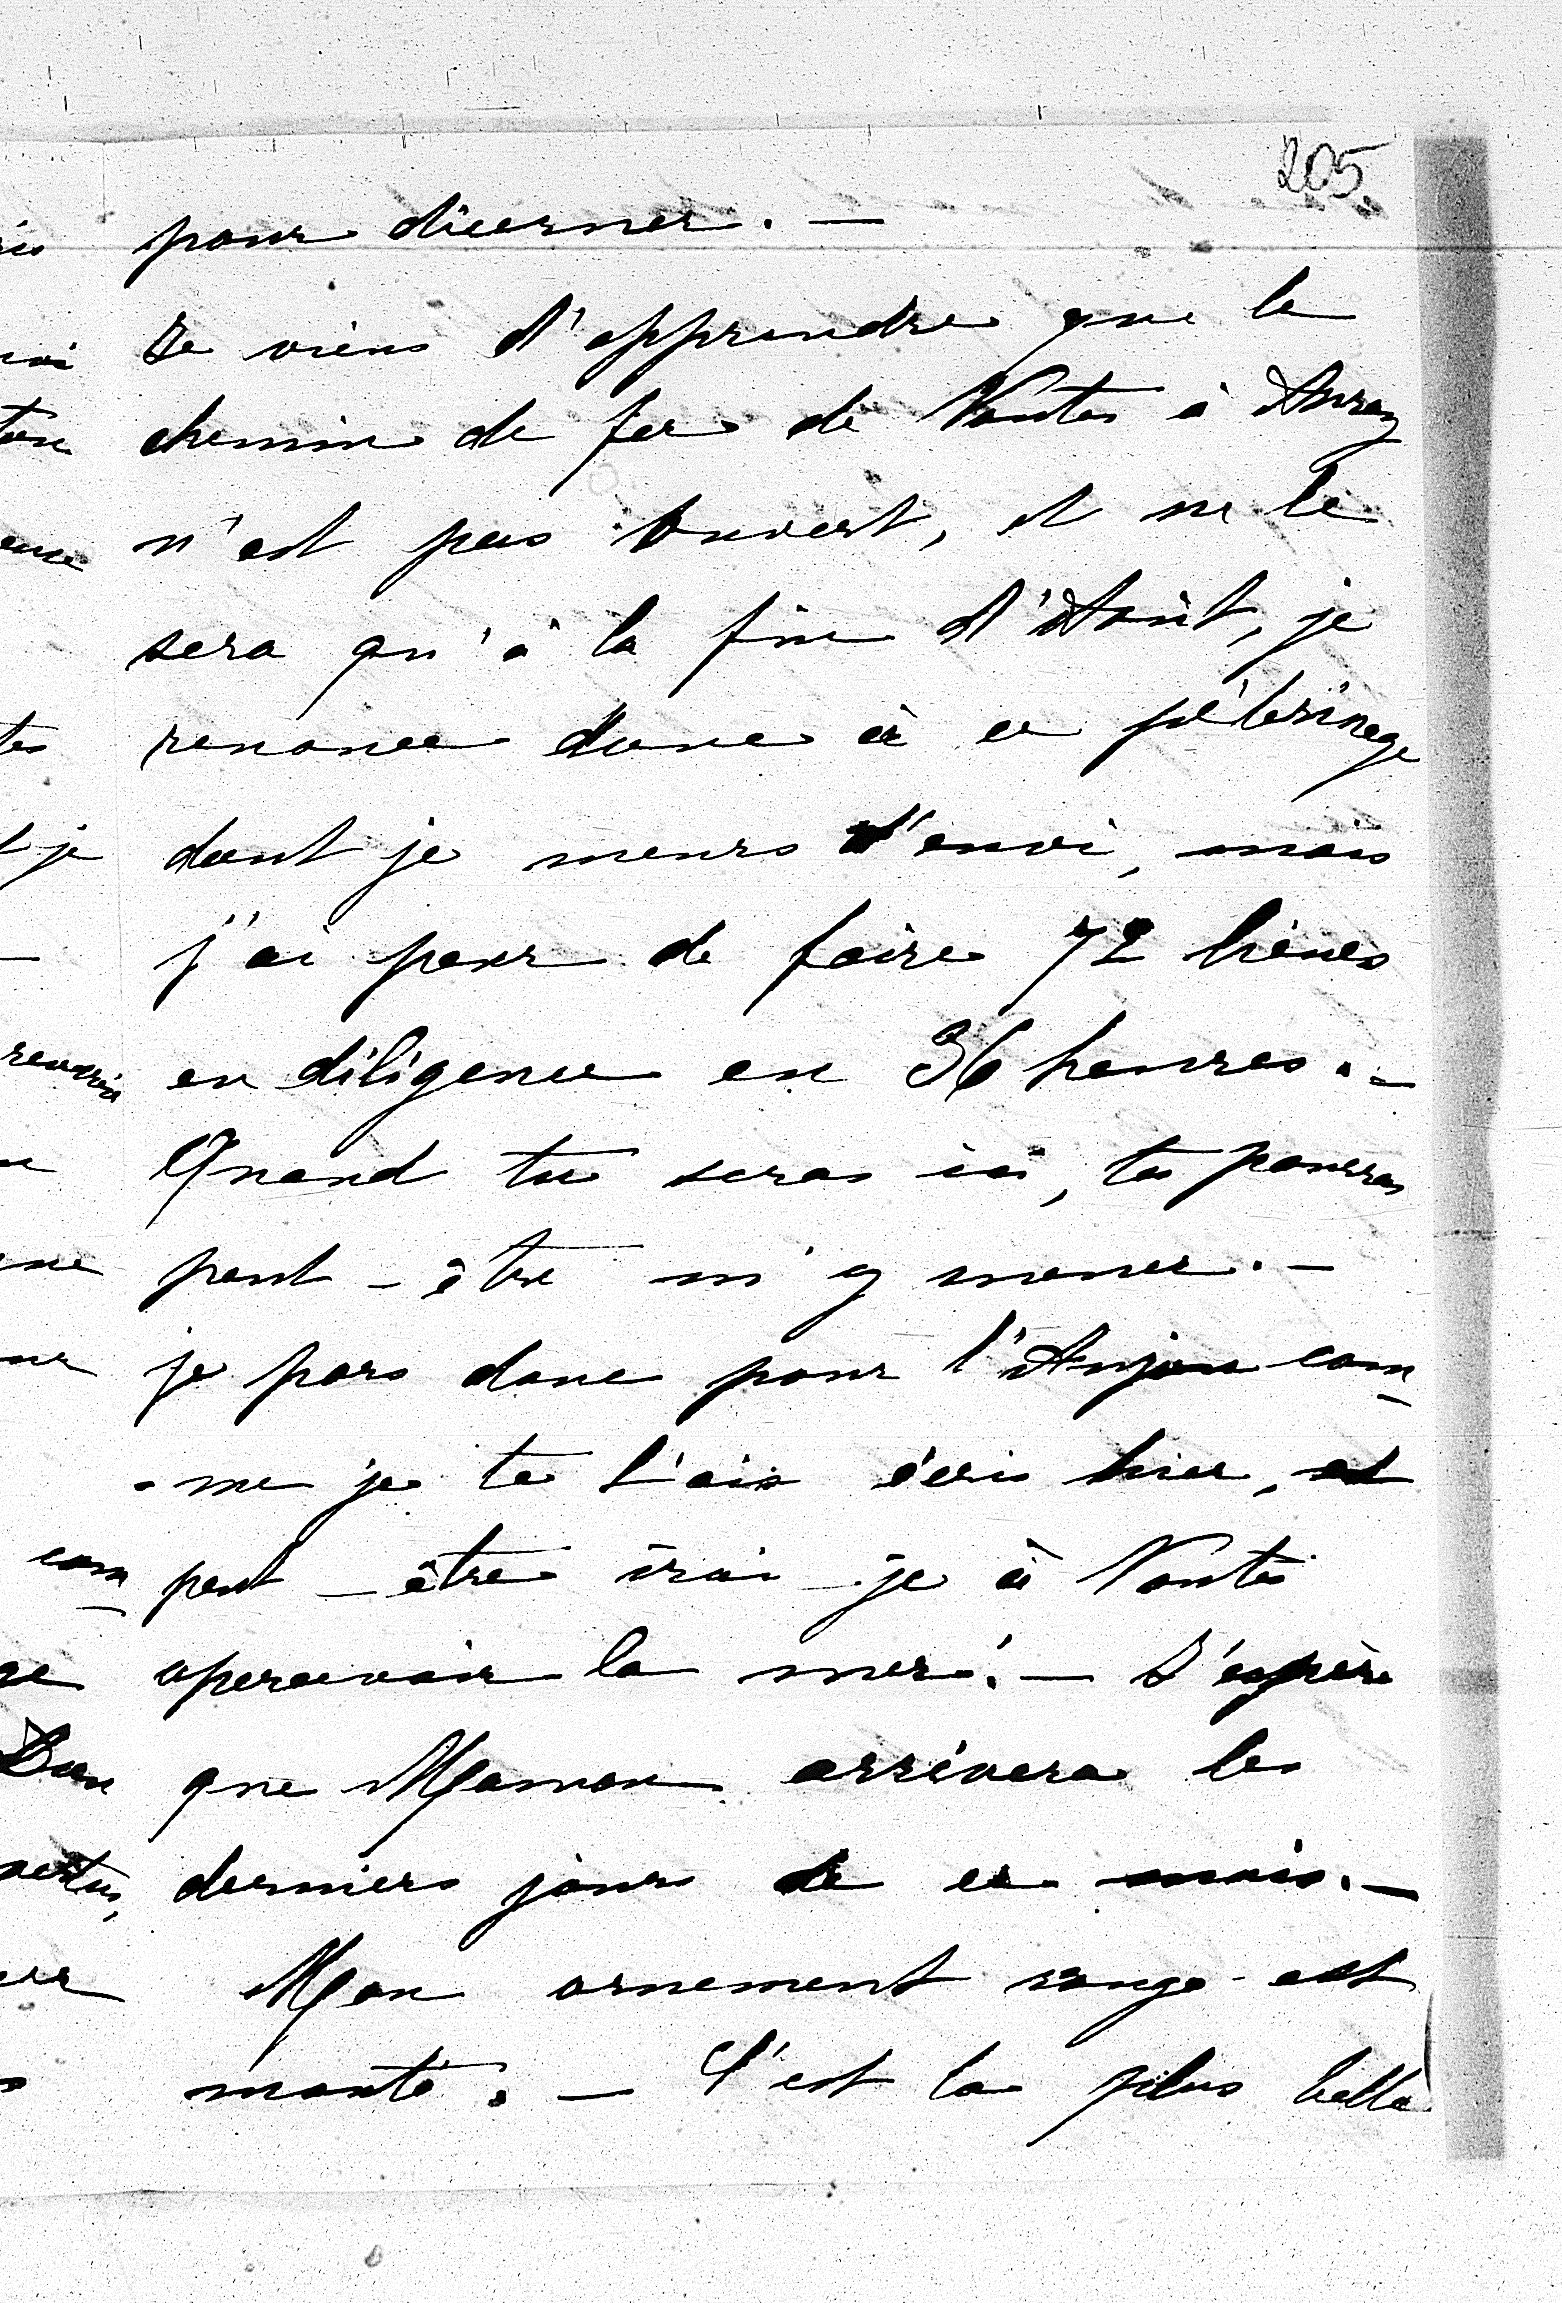 205
pour dicerner. —
Je viens d'apprendre que le
chemin de fer de Nantes à Auray
n'est pas ouvert, et ne le
sera qu'à la fin d'Août, je
renonce donc à ce pélérinage
dont je meurs d'envi, mais
j'ai peur de faire 72 lieues
en diligence en 36 heures. —
Quand tu seras ici, tu pourras
peut-être m'y mener. —
je pars donc pour l'Anjou com-
-me je te l'ais écris hier, et
peut-être irai-je à Nantes
apercevoir la mer. — J'espère
que Maman arrivera les
derniers jours de ce mois. —
Mon ornement rouge est
monté. — C'est la plus belle